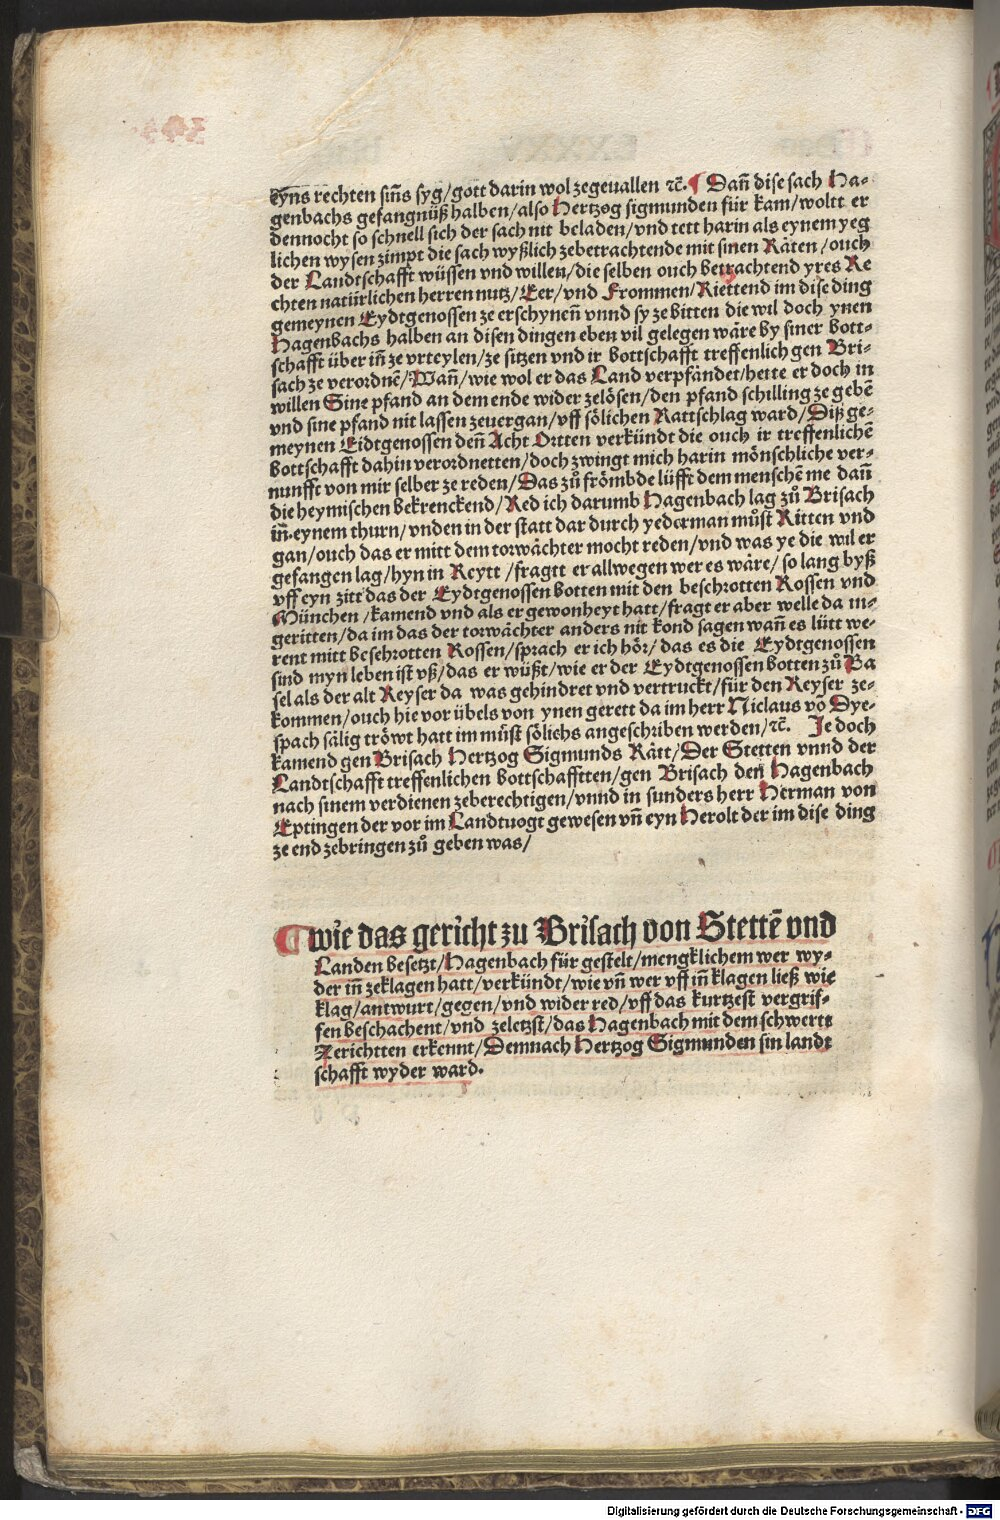 eyns rechten sin̄s syg/gott darin wol zegeuallen ⁊c̄. ¶ Dan̄ dise sach Ha-
genbachs gefangnüß halben/also Hertzog sigmunden für kam/woltt er
dennocht so schnell sich der sach nit beladen/vnd tett harin als eynem yeg
lichen wysen zimpt die sach wyßlich zebetrachtende mit sinen Räten/ouch
der Landtschafft wüssen vnd willen/die selben ouch betrachtend yres Re
chten natürlichen herren nutz/Eer/vnd Frommen/Riettend im dise ding
gemeynen Eydtgenossen ze erschynen̄ vnnd sy ze bitten die wil doch ynen
Hagenbachs halben an disen dingen eben vil gelegen wäre by siner bott-
schafft über in̄ ze vrteylen/ze sitzen vnd ir bottschafft treffenlich gen Bri-
sach ze verordnē/Wan̄/wie wol er das Land verpfändet/hette er doch in
willen Sine pfand an dem ende wider zelösen/den pfand schilling ze gebē
vnd sine pfand nit lassen zeuergan/vff sölichen Rattschlag ward/Diß ge-
meynen Eidtgenossen den̄ Acht Ortten verkündt die ouch ir treffenlichē
bottschafft dahin verordnetten/doch zwingt mich harin mönschliche ver-
nunfft von mir selber ze reden/Das zů frömbde lüfft dem menschē me dan̄
die heymischen bekrenckend/Red ich darumb Hagenbach lag zů Brisach
in̄ eynem thurn/vnden in der statt dar durch yederman můst Ritten vnd
gan/ouch das er mitt dem torwächter mocht reden/vnd was ye die wil er
gefangen lag/hyn in Reytt/fragtt er allwegen wer es wäre/so lang byß
vff eyn zitt das der Eydtgenossen botten mit den beschrotten Rossen vnd
München/kamend vnd als er gewonheyt hatt/fragt er aber welle da in-
geritten/da im das der torwächter anders nit kond sagen wan̄ es lütt we-
rent mitt beschrotten Rossen/sprach er ich hör/das es die Eydtgenossen
sind myn leben ist vß/das er wüßt/wie er der Eydtgenossen botten zů Ba
sel als der alt Keyser da was gehindret vnd vertruckt/für den Keyser ze-
kommen/ouch hie vor übels von ynen gerett da im herr Niclaus vō Dye-
spach sälig tröwt hatt im můst sölichs angeschriben werden/⁊c̄. Je doch
kamend gen Brisach Hertzog Sigmunds Rätt/Der Stetten vnnd der
Landtschafft treffenlichen bottschafftten/gen Brisach den Hagenbach
nach sinem verdienen zeberechtigen/vnnd in sunders herr Herman von
Eptingen der vor im Landtuogt gewesen vn̄ eyn Herolt der im dise ding
ze end zebringen zů geben was/
¶ wie das gericht zu Brisach von Stettē vnd
Landen besetzt/Hagenbach für gestelt/mengklichem wer wy-
der in̄ zeklagen hatt/verkündt/wie vn̄ wer vff in̄ klagen ließ wie
klag/antwurt/gegen/vnd wider red/vff das kurtzest vergrif-
fen beschachent/vnd zeletzst/das Hagenbach mit dem schwertt
Zerichtten erkennt/Demnach Hertzog Sigmunden sin landt
schafft wyder ward.
Digitalisierung gefördert durch die Deutsche Forschungsgemeinschaft - DFG